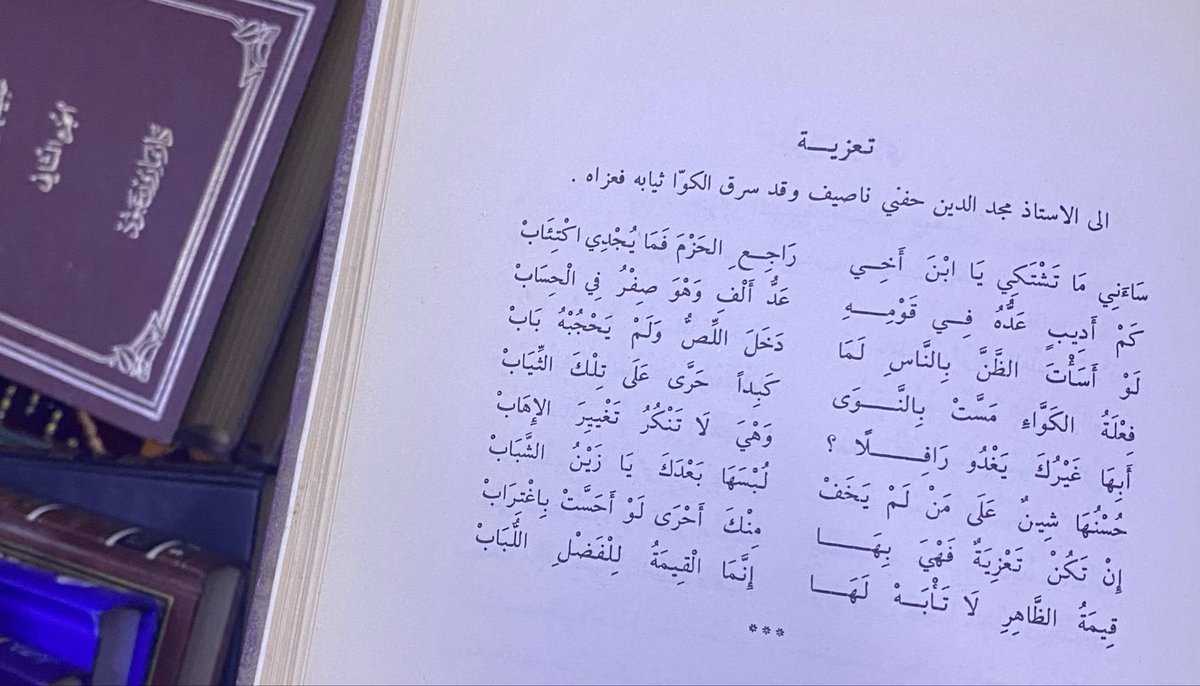 تعزيـــة
الى الاستاذ مجد الدين حفني ناصيف وقد سرق الكوّا ثيابه فعزاه .
سَاءَنِي مَا تَشْتَكِي يَا ابْنَ أَخِـــي رَاجِـــعِ الحَزْمَ فَمَا يُجْدِي اكْتِئَابْ
كَمْ أَدِيبٍ عَدُّهُ فِـــي قَوْمِـــهِ عَدُّ أَلْفٍ وَهْوَ صِفْرُ فِي الْحِسَابْ
لَوْ أَسَأْتَ الظَّنَّ بِالنَّاسِ لَمَا دَخَلَ اللِّصُّ وَلَمْ يَحْجُبْهُ بَابْ
فِعْلَةُ الكَوَّاءِ مَسَّتْ بِالنَّـــوَى كَبِداً حَرَّى عَلَى تِلْكَ الثِّيَابْ
أَبِهَا غَيْرُكَ يَغْدُو رَافِـــــلًا ؟ وَهْيَ لَا تَنْكُرُ تَغْيِيرَ الإِهَابْ
حُسْنُهَا شِينٌ عَلَى مَنْ لَمْ يَخَفْ لُبْسَهَا بَعْدَكَ يَا زَيْنُ الشَّبَابْ
إِنْ تَكُنْ تَعْزِيَةٌ فَهْيَ بِهَـــــا مِنْكَ أَحْرَى لَوْ أَحَسَّتْ بِاغْتِرَابْ
قِيمَةُ الظَّاهِرِ لَا تَأْبَـــهْ لَهَـــا إِنَّمَا الْقِيمَةُ لِلْفَضْلِ اللُّبَابْ
***